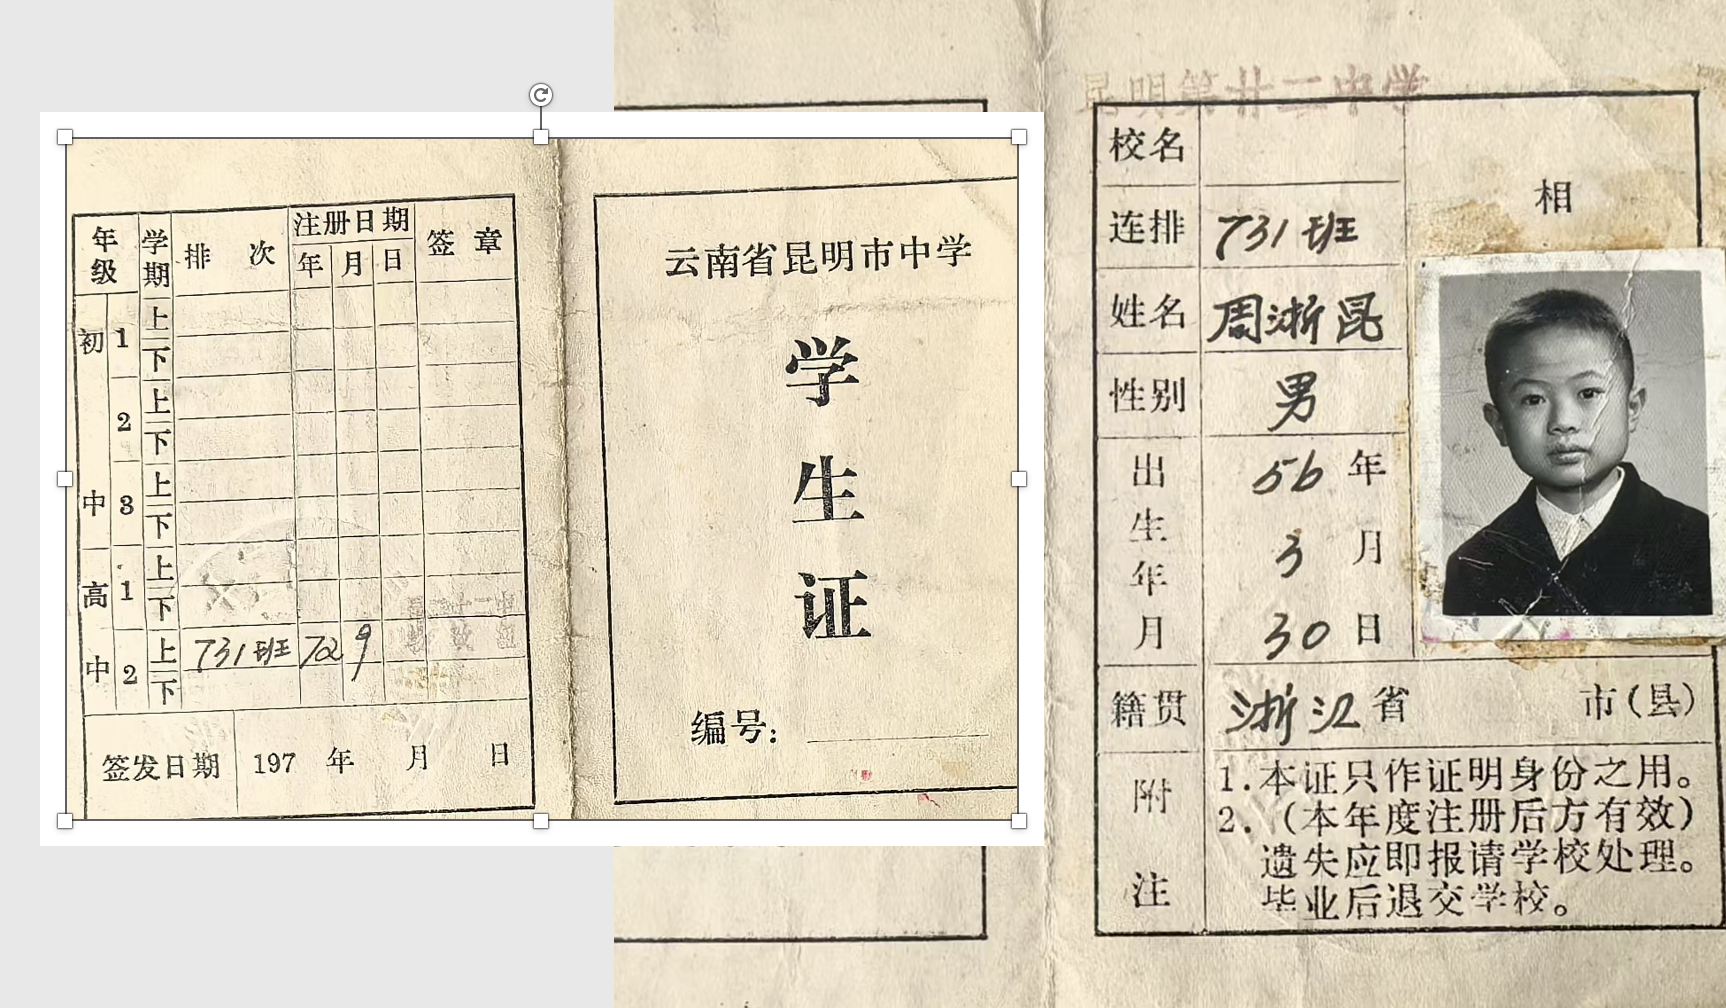 年级 学期 排次 注册日期 签章
年 月 日
初 1 上
下
2 上
下
中 3 上
下
高 1 上
下
中 2 上 731班 72 9
下
签发日期 197 年 月 日
云南省昆明市中学
学
生
证
编号：
昆明第廿二中学
校名
相
连排 731班
姓名 周浙昆
性别 男
出生年月 56年
3月
30日
籍贯 浙江省 市(县)
附注 1.本证只作证明身份之用。
2.(本年度注册后方有效)
遗失应即报请学校处理。
毕业后退交学校。